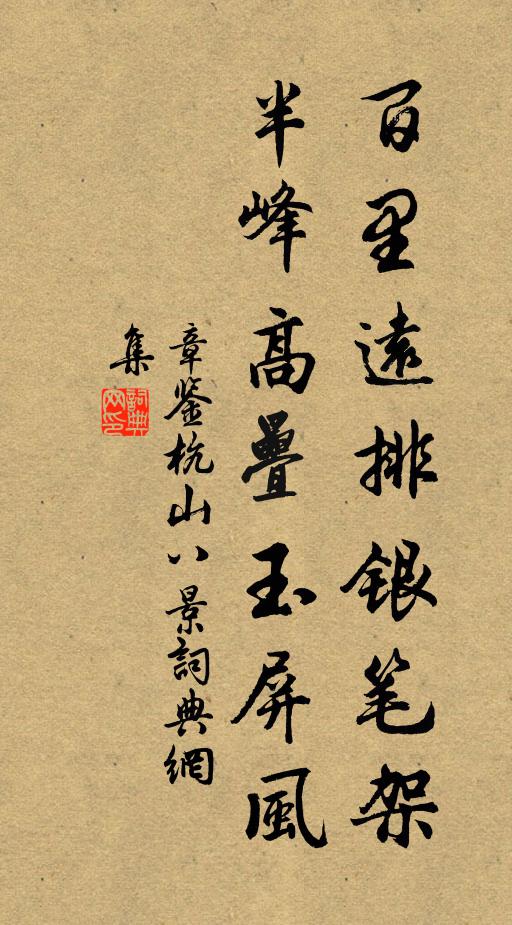 百里遠排銀笔架
半峰高疊玉屏風
章鉴杭山八景詞典網
集
詞典網印